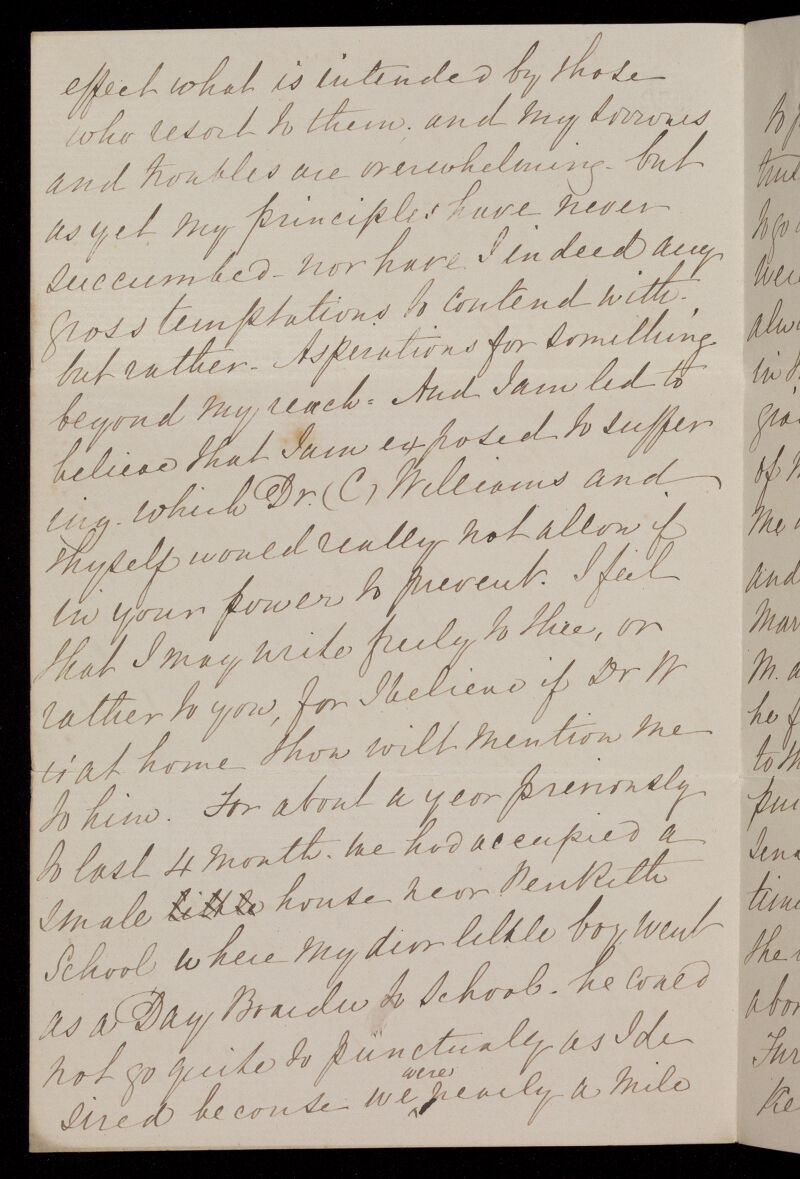 effect what is intended by those
who resort to them. and my sorrows
and troubles are overwhelming - but
as yet my principles have never
succumbed - nor have I indeed any
gross temptations to contend with.
but rather - Asperations for something
beyond my reach = And I am led to
believe that I am exposed to suffer
ing - which Dr. (C) Williams and
thyself would really not allow if
in your power to prevent. I feel
that I may write freely to thee, or
rather to you, for I believe if Dr W
is at home thou wilt mention me
to him. For about a year previously
to last 4 month. we had occupied a
small little house near Penketh
School where my dear little boy went
as a Day Boarder to School - he could
not go quite so punctualy as I de
sired because we were nearly a mile
to
to go
were
in
of
me
and
M. a
he
to th
time
the